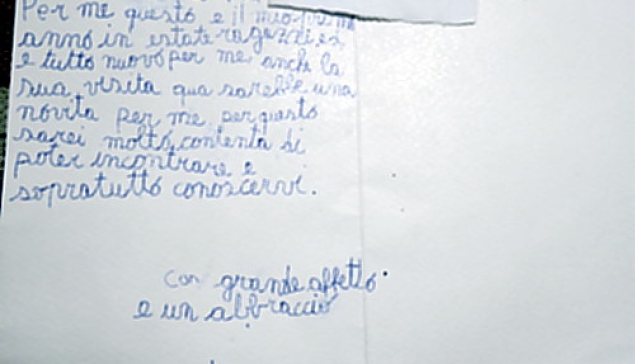 Per me questo e il mio primo
anno in estate ragazzi ed
e tutto nuovo per me anche la
sua visita qua sarebbe una
novita per me per questo
sarei molto contenta di
poter incontrare e
sopratutto conoscervi.
con grande affetto
e un abbraccio